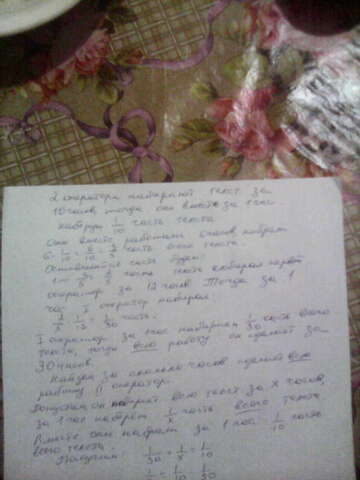 2 оператора набирают текст за
10 часов, тогда они вместе за 1 час
наберут 1/10 часть текста
Они вместе работали 6 часов, набрали
6 · 1/10 = 6/10 = 3/5 часть всего текста.
Оставшаяся часть будет:
1 - 3/5 = 2/5 часть текста набирал первый
оператор за 12 часов. Тогда за 1
час I оператор набирал:
2/5 · 1/12 = 1/30 часть.
I оператор за час набирал 1/30 часть всего
текста, тогда всю работу он сделает за
30 часов.
Найдем за сколько часов сделает всю
работу II оператор.
Допустим он наберет весь текст за x часов,
за 1 час наберет 1/x часть всего текста,
Вместе они набрали за 1 час 1/10 часть
всего текста.
Получим: 1/30 + 1/x = 1/10
1/x = 1/10 - 1/30